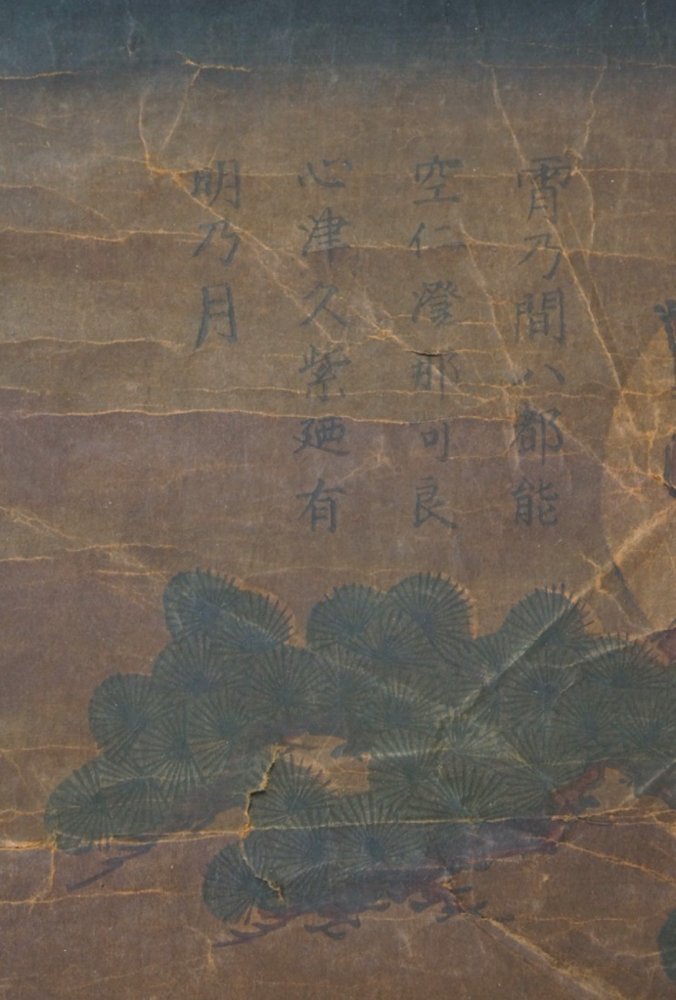 宵乃間八都能
空仁澄那可良
心津久紫廼有
明乃月